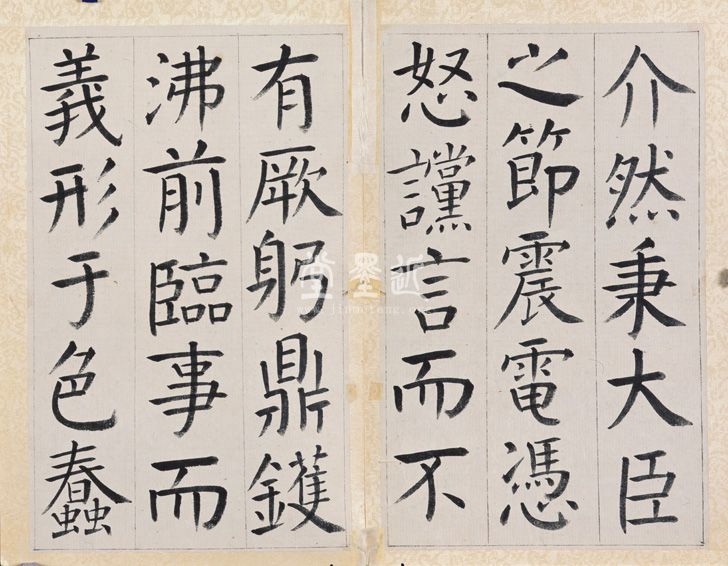 介然秉大臣
之節震電憑
怒讜言而不
有厥躬鼎鑊
沸前臨事而
義形于色蠢
近墨堂
www.jinmotang.com